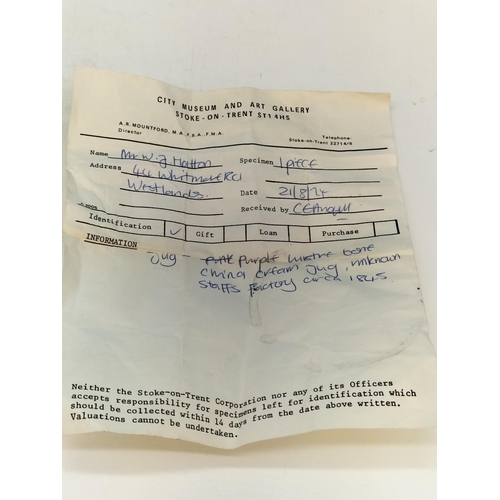 CITY MUSEUM AND ART GALLERY
STOKE-ON-TRENT ST1 4HS
A.R. MOUNTFORD, M.A., F.S.A., F.M.A.
Director
Telephone:
Stoke-on-Trent 22714/8
Name Mr W.J. Hatton
Specimen 1 piece
Address 44 Whitmore Rd
Westlands
Date 21/8/74
Received by
Identification ✓ Gift Loan Purchase
INFORMATION
Jug - purple lustre bone
china cream jug, unknown
Staffs factory circa 1845.
Neither the Stoke-on-Trent Corporation nor any of its Officers
accepts responsibility for specimens left for identification which
should be collected within 14 days from the date above written.
Valuations cannot be undertaken.